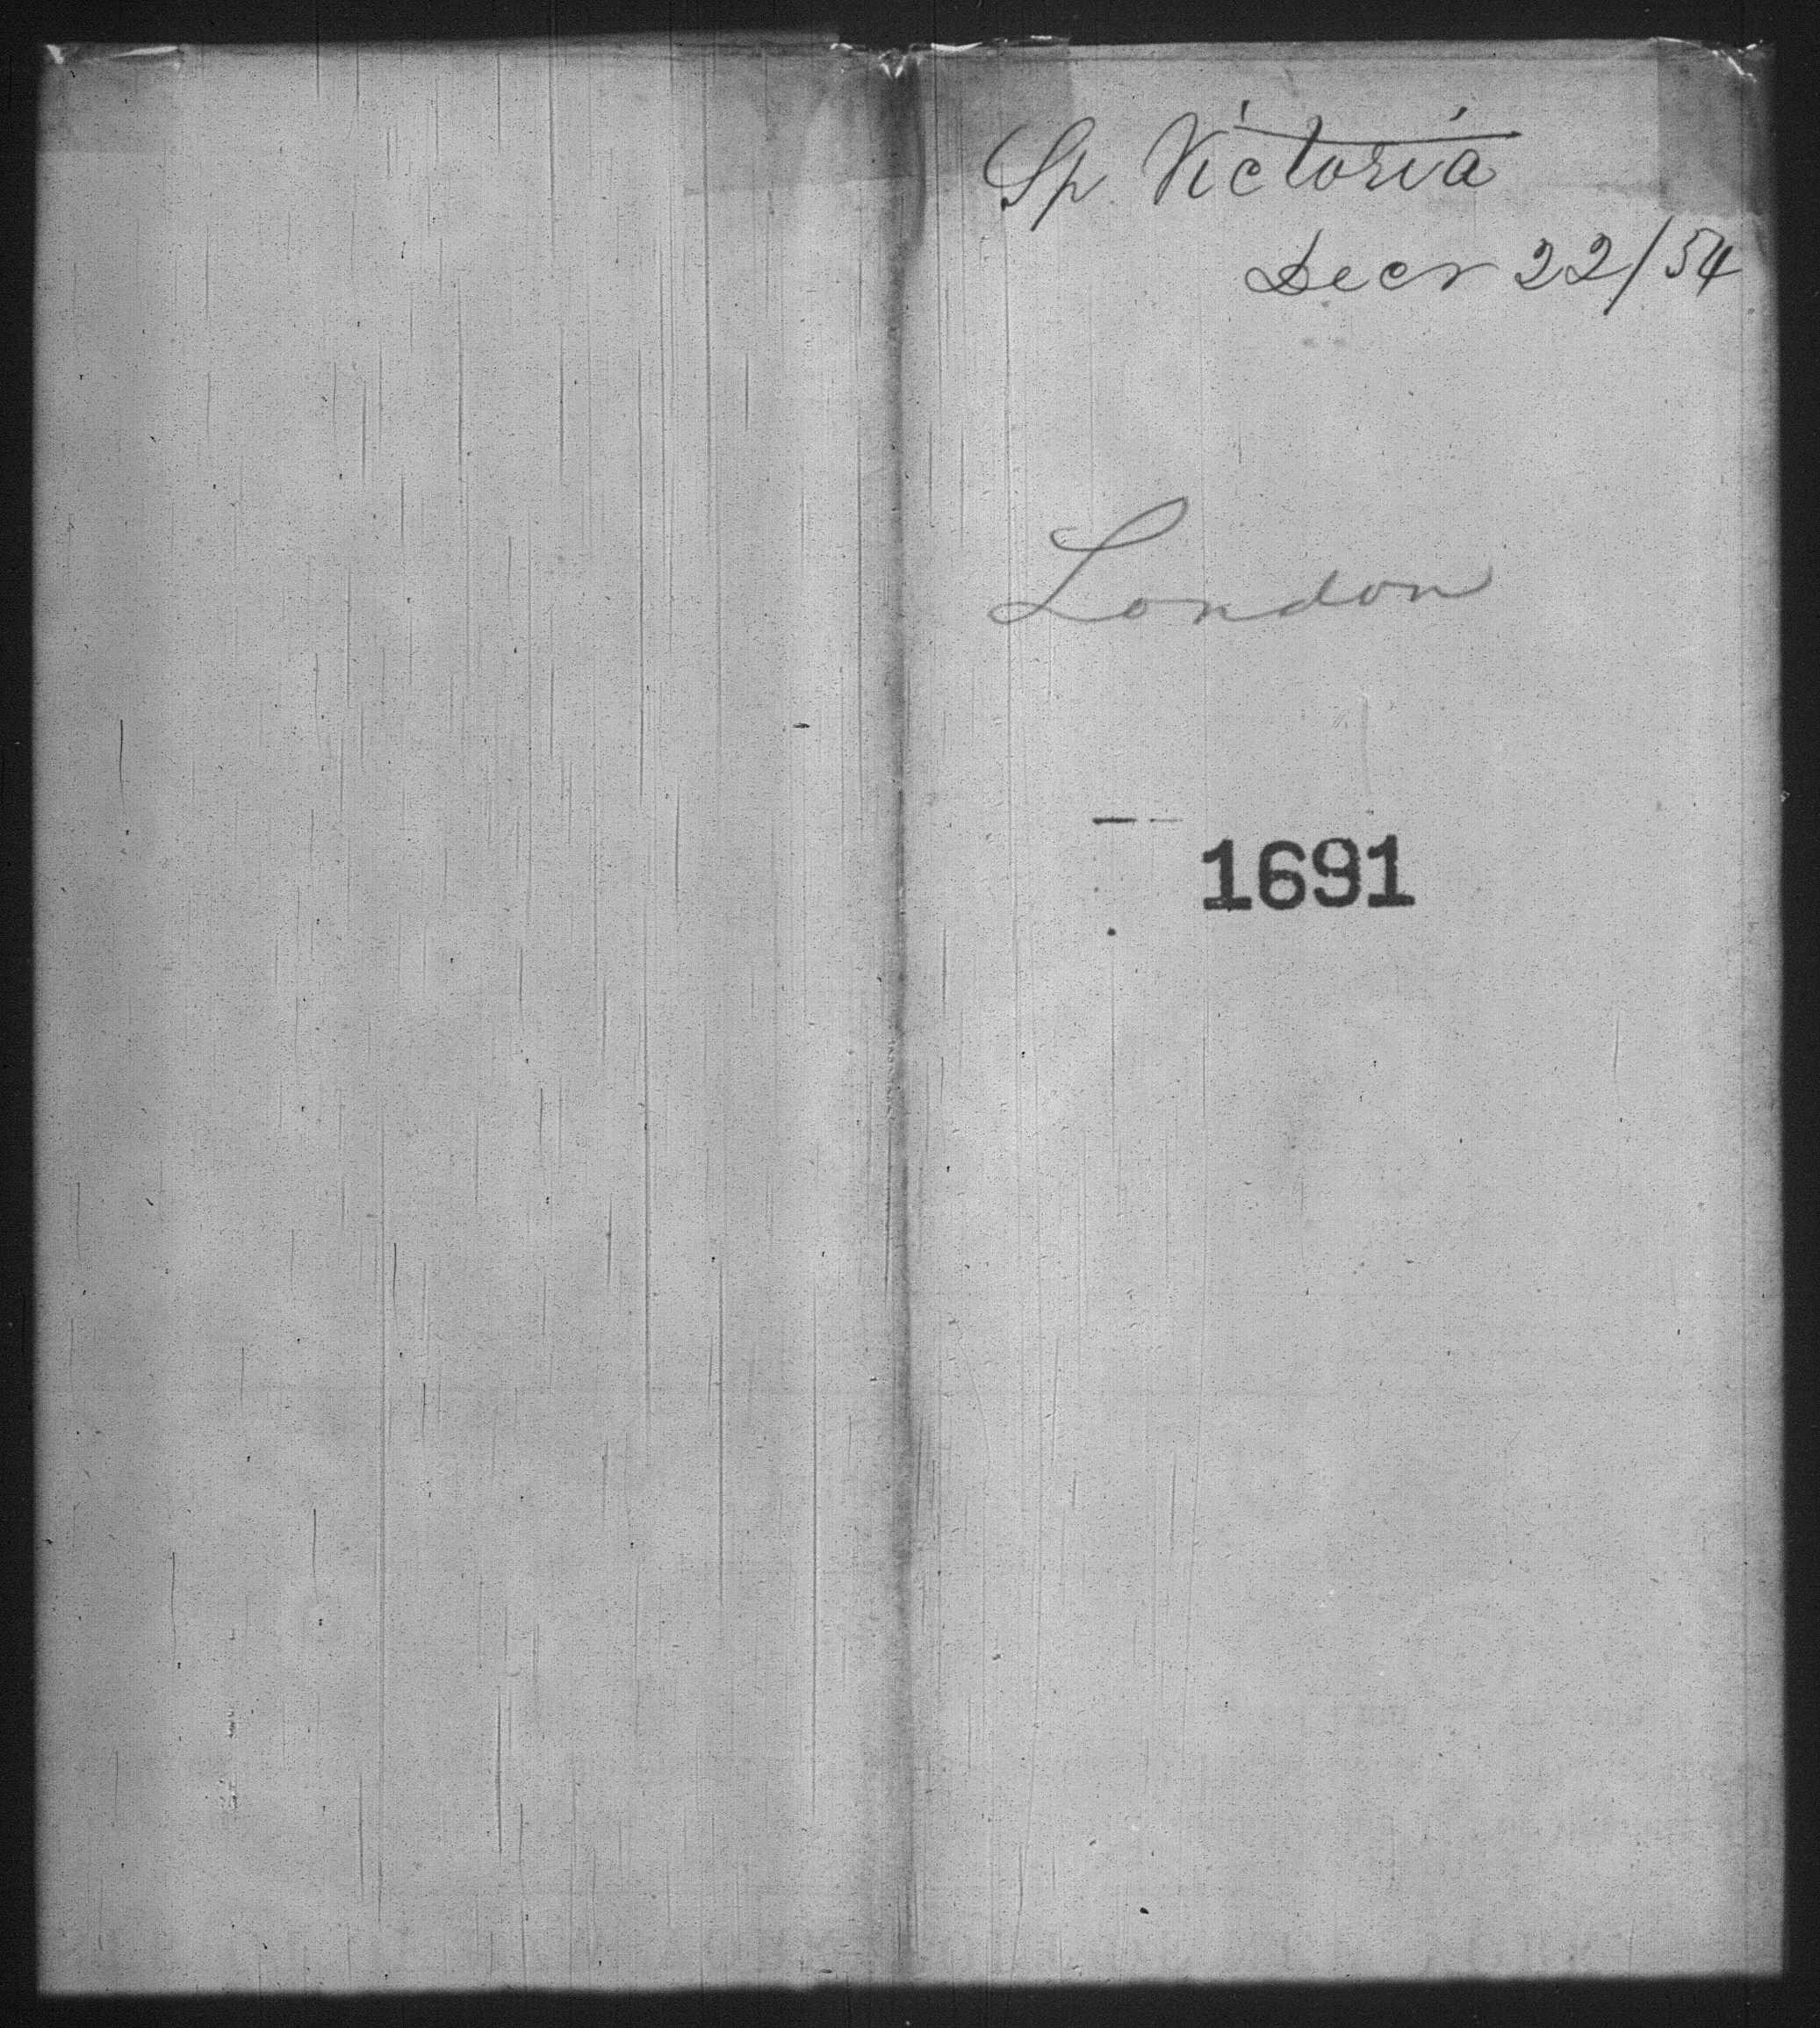 Sp Victoria
Decr 22/54
London
1691